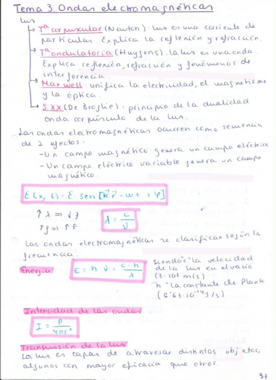 Tema 3. Ondas electromagnéticas
Luz
Tª corpuscular (Newton) luz es una corriente de
partículas. Explica la reflexión y refracción.
Tª ondulatoria (Huygens). la luz es una onda
Explica reflexión, refracción y fenómenos de
interferencia
Maxwell unifica la electricidad, el magnetismo
y la óptica
S. XX (De Broglie). principio de la dualidad
onda corpúsculo de la luz.
Las ondas electromagnéticas ocurren como secuencia
de 2 efectos:
- Un campo magnético genera un campo eléctrico
- Un campo eléctrico variable genera un campo
magnético
λ = c/ν
Las ondas electromagnéticas se clasifican según la
frecuencia.
Energía: E = h ν = c·h/λ
siendo "c" la velocidad
de la luz en el vacío
"h" la constante de Planck
Intensidad de las ondas
I = P/4πr²
Transmisión de la luz
La luz es capaz de atravesar distintos objetos,
algunos con mayor eficacia que otros